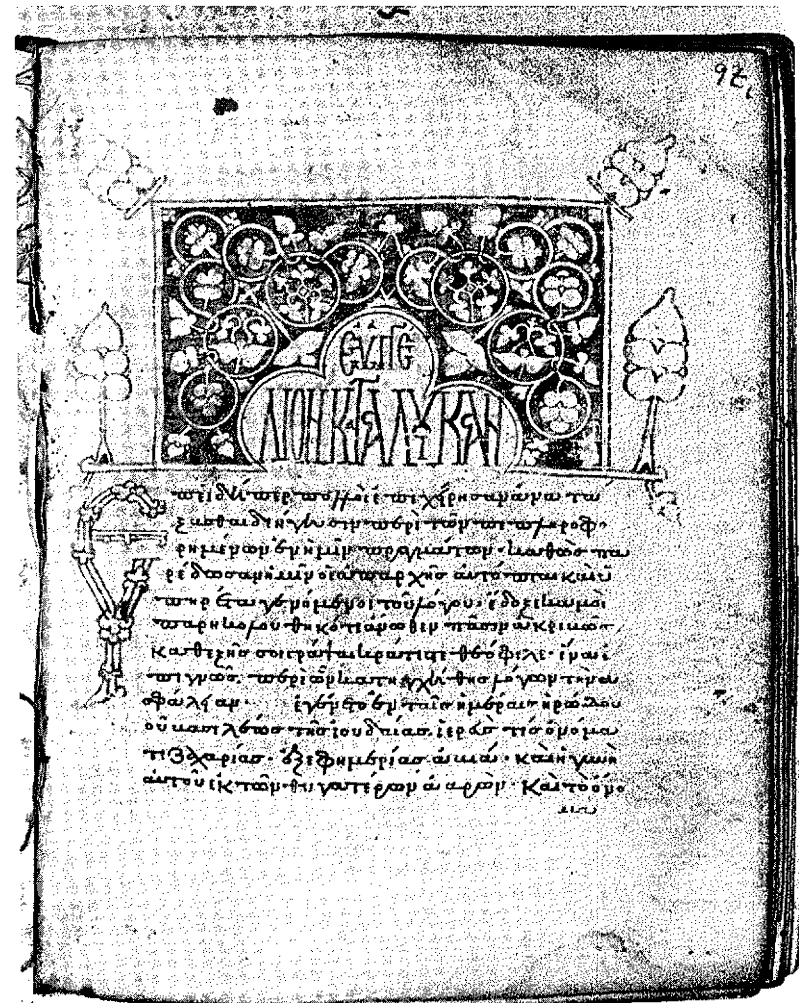 97
ΕΥΑΓΓΕ
ΛΙΟΝ ΚΑΤΑ ΛΟΥΚΑΝ
Ἐπειδήπερ πολλοὶ ἐπεχείρησαν ἀνατα
ξασθαι διήγησιν περὶ τῶν πεπληροφο
ρημένων ἐν ἡμῖν πραγμάτων· καθὼς πα
ρέδωσαν ἡμῖν οἱ ἀπαρχῆς αὐτόπται καὶ ὑ
πηρέται γενόμενοι τοῦ λόγου· ἔδοξε κἀμοὶ
παρηκολουθηκότι ἄνωθεν πᾶσιν ἀκριβῶς
καθεξῆς σοι γράψαι κράτιστε θεόφιλε· ἵνα ἐ
πιγνῶς περὶ ὧν κατηχήθης λόγων τὴν ἀ
σφάλειαν· ἐγένετο ἐν ταῖς ἡμέραις ἡρώδου
τοῦ βασιλέως τῆς ἰουδαίας ἱερεύς τις ὀνόμα
τι ζαχαρίας· ἐξ ἐφημερίας ἀβιά· καὶ ἡ γυνὴ
αὐτοῦ ἐκ τῶν θυγατέρων ἀαρών· καὶ τὸ ὄνο